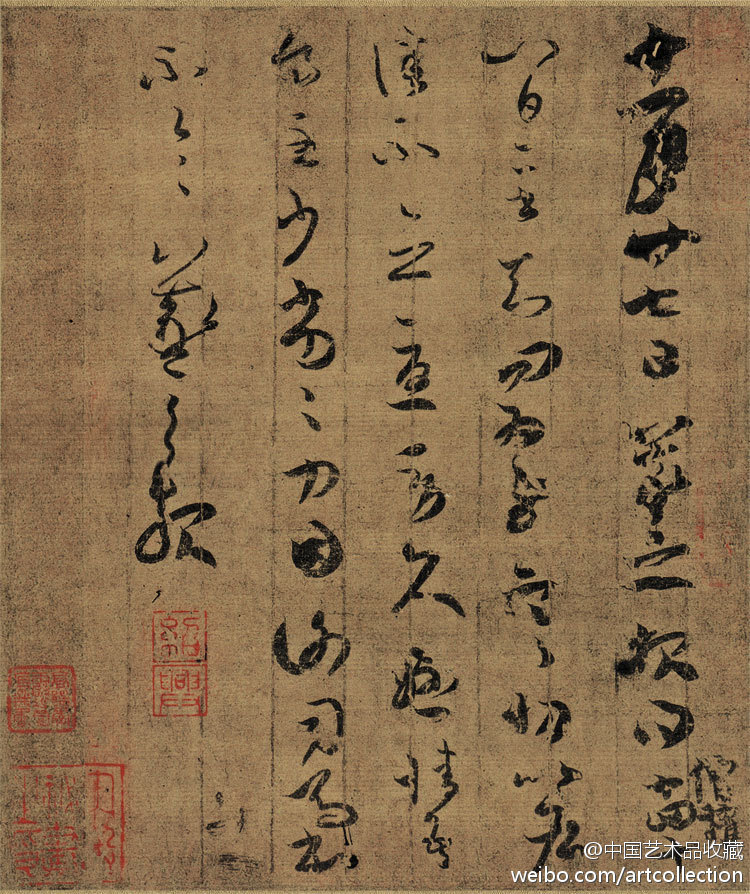 十一月廿七日羲之報得十四十
八日二書知問為慰寒切比各
佳不念憂勞久懸情吾
食至少劣劣力因謝司馬書
不一一羲之報
僧權
紹興
@中国艺术品收藏
weibo.com/artcollection